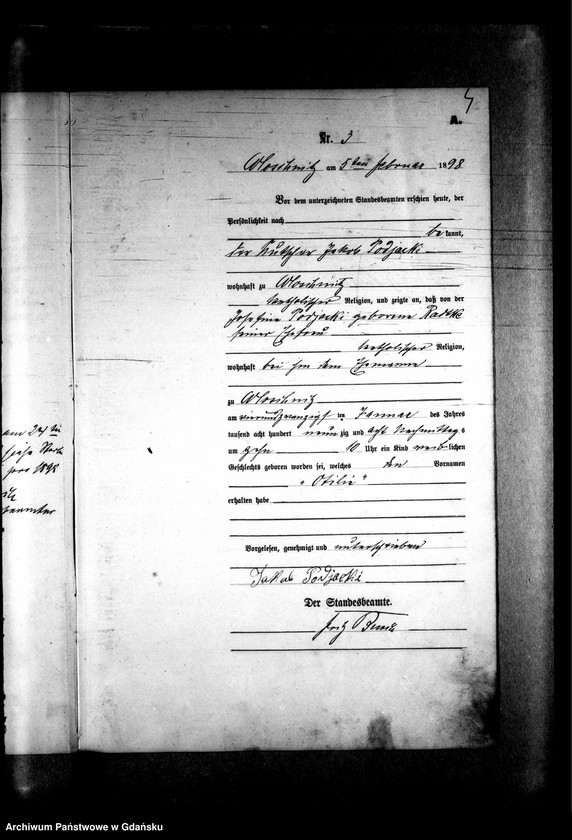 A.
Nr. 3
am 5ten Februar 1898
Vor dem unterzeichneten Standesbeamten erschien heute, der
Persönlichkeit nach
be kannt,
der Kutscher Jakob Podjacki
wohnhaft zu
katholischer Religion, und zeigte an, daß von der
Josefine Podjacki geborene Radtke
seiner Ehefrau
katholischer Religion,
wohnhaft bei ihm dem Ehemanne
zu
am vierundzwanzigsten Januar des Jahres
tausend acht hundert neunzig und acht Nachmittags
um zehn 10 Uhr ein Kind weiblichen
Geschlechts geboren worden sei, welches den Vornamen
„Otilie"
erhalten habe
Vorgelesen, genehmigt und unterschrieben
Jakob Podjacki
Der Standesbeamte.
am 24
pro 1898
Archiwum Państwowe w Gdańsku